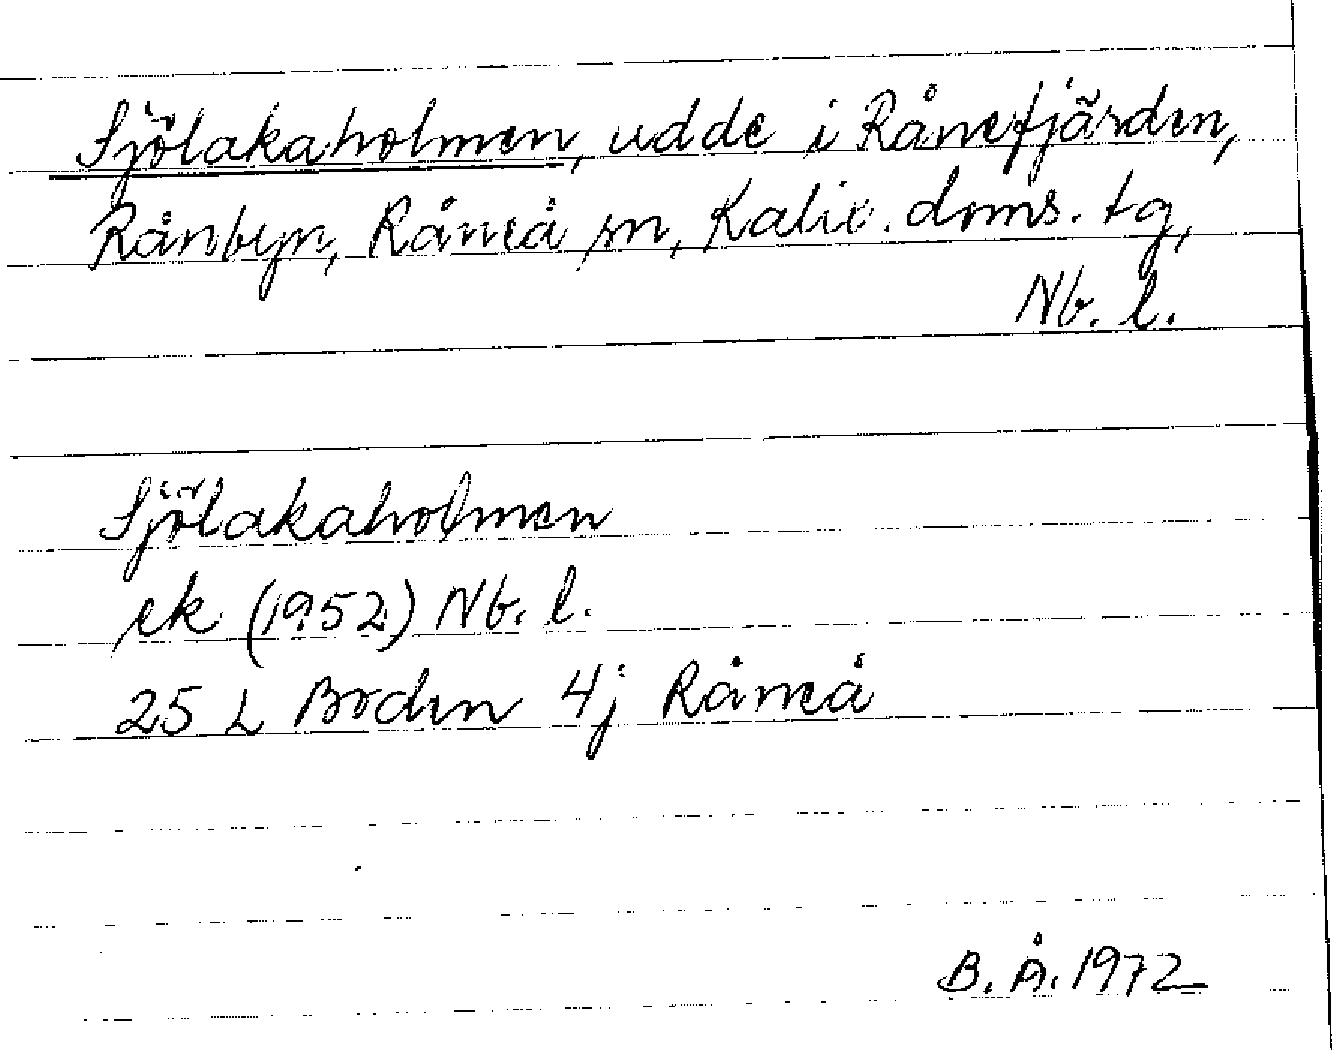 Sjölakaholmen, udde i Rånefjärden,
Rånbyn, Råneå sn, Kalix. doms. tg,
Nb. l.
Sjölakaholmen
ek (1952) Nb. l.
25 L Boden 4j Råneå
B. Å. 1972